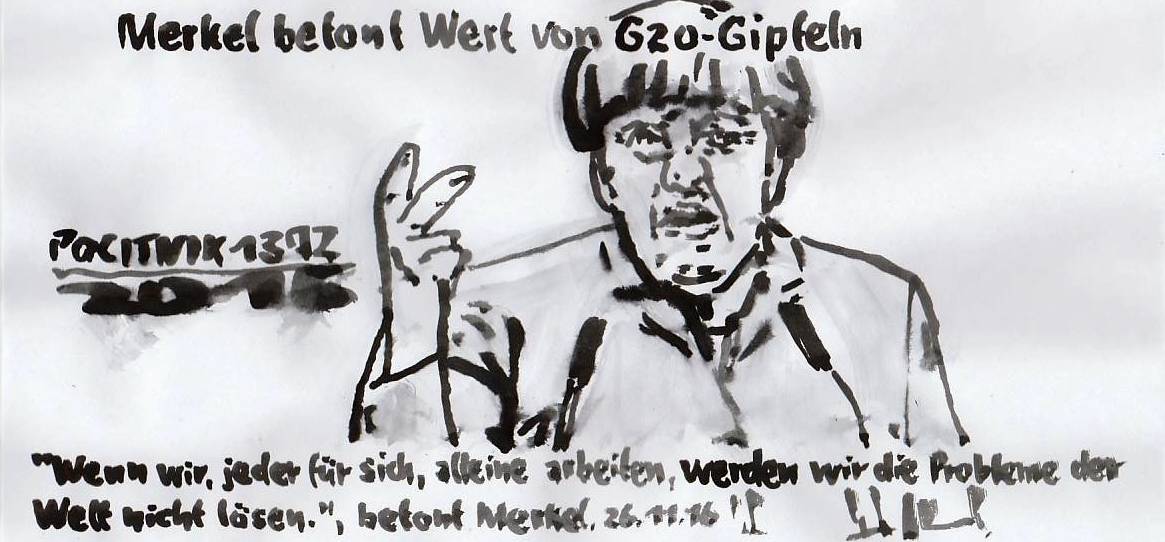 Merkel betont Wert von G20-Gipfeln
POLITNIK 1372
2016
"Wenn wir, jeder für sich, alleine arbeiten, werden wir die Probleme der
Welt nicht lösen.", betont Merkel, 26.11.16